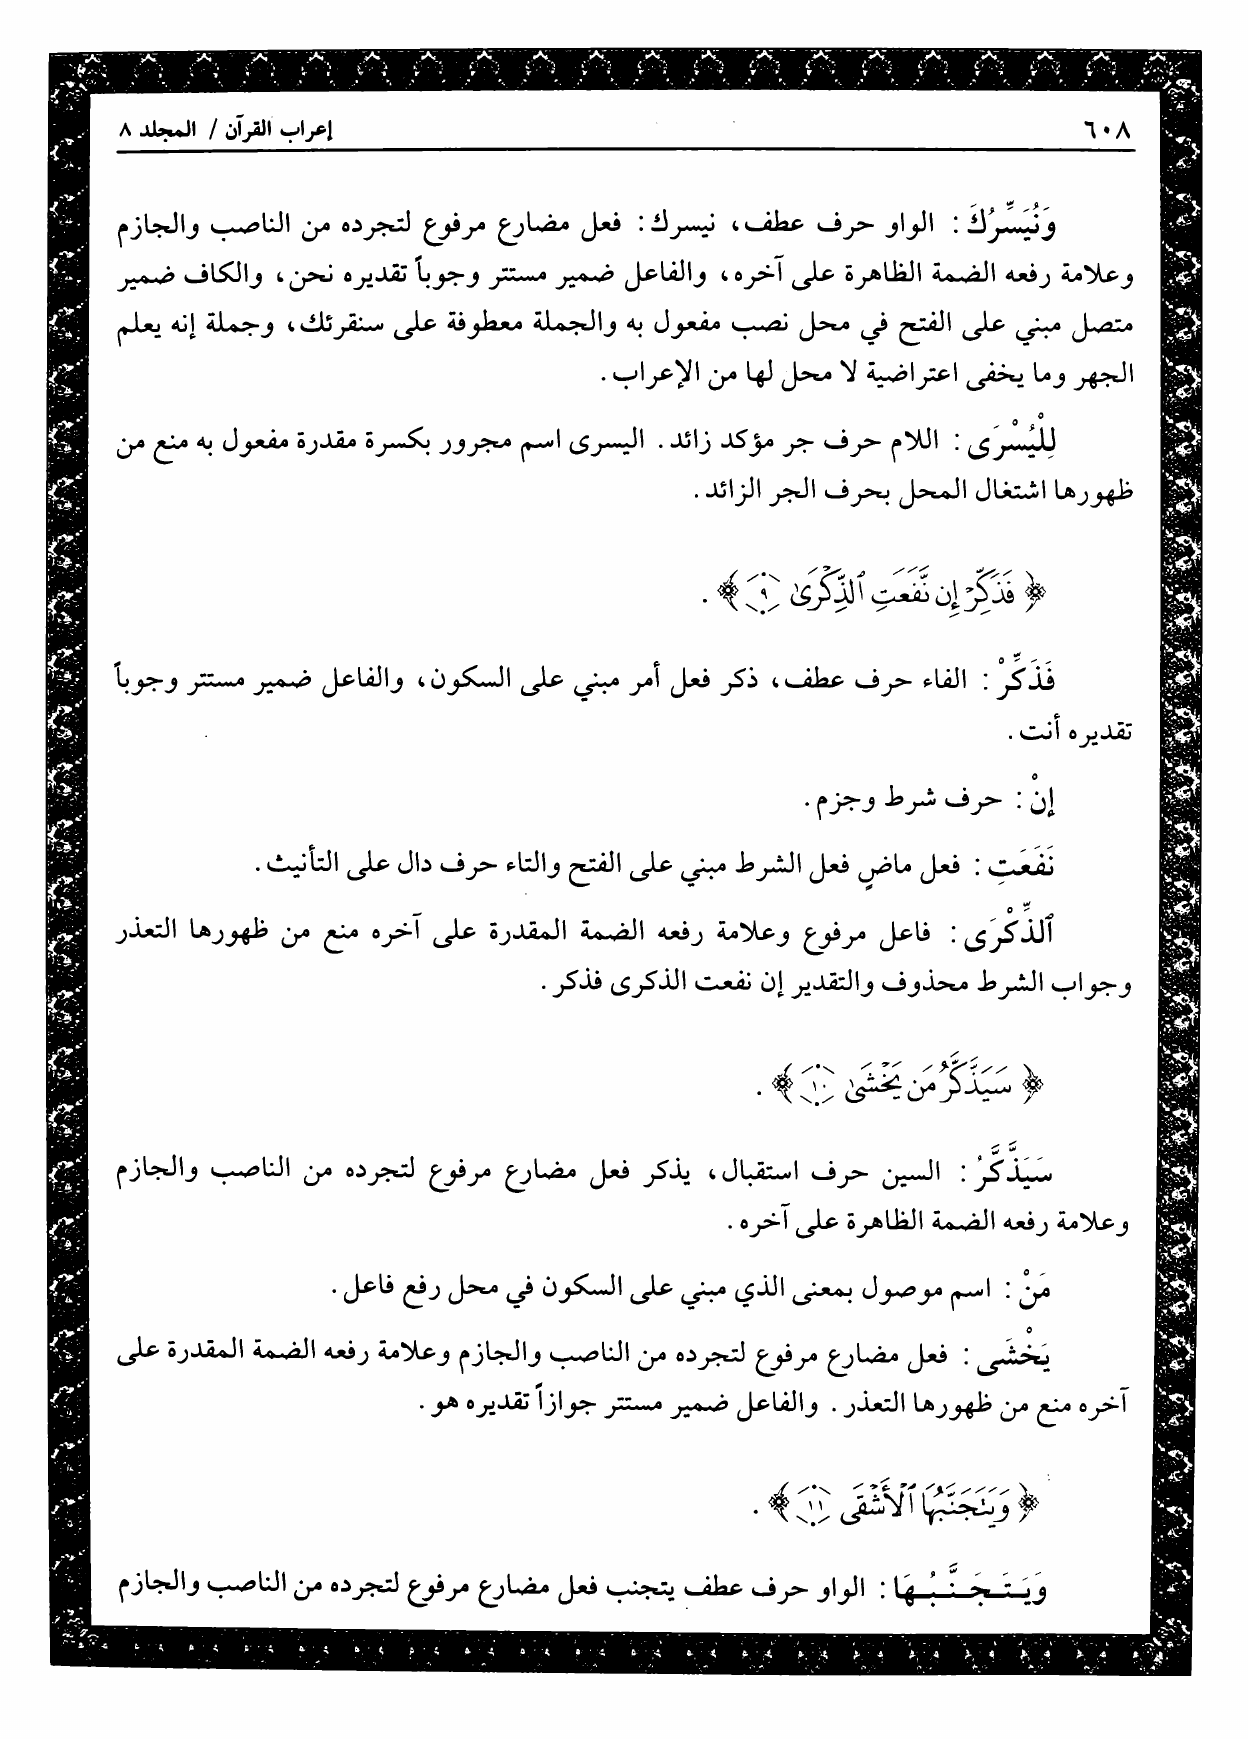 ٦٠٨ إعراب القرآن / المجلد ٨
وَنُيَسِّرُكَ : الواو حرف عطف، نيسرك: فعل مضارع مرفوع لتجرده من الناصب والجازم
وعلامة رفعه الضمة الظاهرة على آخره، والفاعل ضمير مستتر وجوباً تقديره نحن، والكاف ضمير
متصل مبني على الفتح في محل نصب مفعول به والجملة معطوفة على سنقرئك، وجملة إنه يعلم
الجهر وما يخفى اعتراضية لا محل لها من الإعراب.
لِلْيُسْرَى : اللام حرف جر مؤكد زائد. اليسرى اسم مجرور بكسرة مقدرة مفعول به منع من
ظهورها اشتغال المحل بحرف الجر الزائد.
﴿ فَذَكِّرْ إِن نَّفَعَتِ ٱلذِّكْرَىٰ ٩ ﴾ .
فَذَكِّرْ : الفاء حرف عطف، ذكر فعل أمر مبني على السكون، والفاعل ضمير مستتر وجوباً
تقديره أنت.
إنْ : حرف شرط وجزم.
نَفَعَتِ : فعل ماضٍ فعل الشرط مبني على الفتح والتاء حرف دال على التأنيث.
ٱلذِّكْرَى : فاعل مرفوع وعلامة رفعه الضمة المقدرة على آخره منع من ظهورها التعذر
وجواب الشرط محذوف والتقدير إن نفعت الذكرى فذكر.
﴿ سَيَذَّكَّرُ مَن يَخْشَىٰ ١٠ ﴾ .
سَيَذَّكَّرُ : السين حرف استقبال، يذكر فعل مضارع مرفوع لتجرده من الناصب والجازم
وعلامة رفعه الضمة الظاهرة على آخره.
مَنْ : اسم موصول بمعنى الذي مبني على السكون في محل رفع فاعل.
يَخْشَى : فعل مضارع مرفوع لتجرده من الناصب والجازم وعلامة رفعه الضمة المقدرة على
آخره منع من ظهورها التعذر. والفاعل ضمير مستتر جوازاً تقديره هو.
﴿ وَيَتَجَنَّبُهَا ٱلْأَشْقَى ١١ ﴾ .
وَيَتَجَنَّبُهَا : الواو حرف عطف يتجنب فعل مضارع مرفوع لتجرده من الناصب والجازم